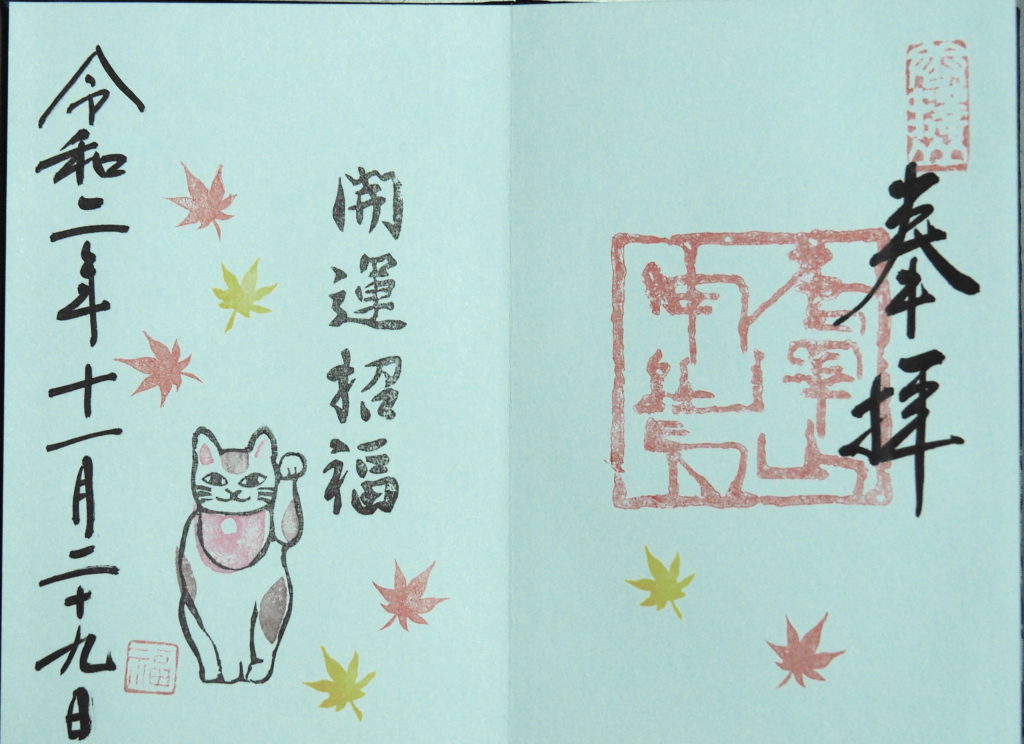 奉拝
開運招福
令和二年十一月二十九日
福